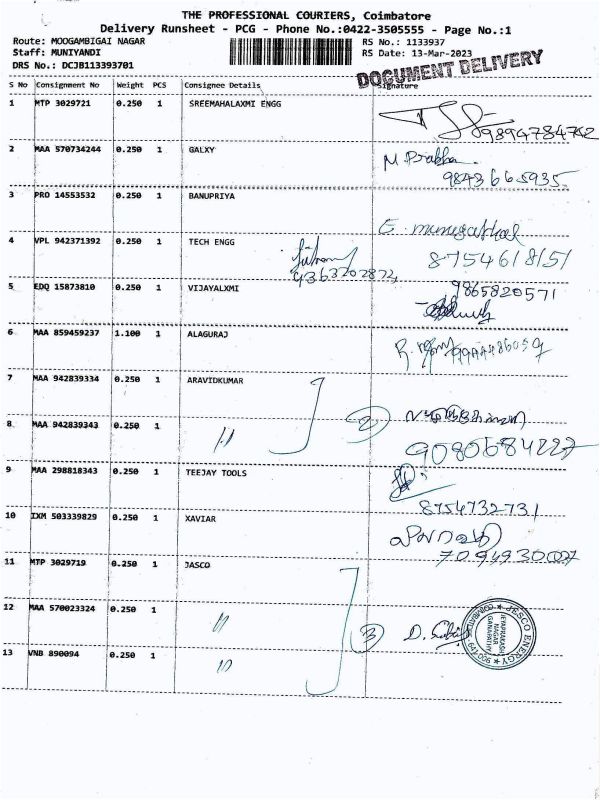 THE PROFESSIONAL COURIERS, Coimbatore
Delivery Runsheet - PCG - Phone No.:0422-3505555 - Page No.:1
Route: MOOGAMBIGAI NAGAR RS No.: 1133937
Staff: MUNIYANDI RS Date: 13-Mar-2023
DRS No.: DCJB113393701
DOCUMENT DELIVERY
S No Consignment No Weight PCS Consignee Details Signature
1 MTP 3029721 0.250 1 SREEMAHALAXMI ENGG
9894784742
2 MAA 570734244 0.250 1 GALXY M Prabha
9843665935
3 PRO 14553532 0.250 1 BANUPRIYA
4 VPL 942371392 0.250 1 TECH ENGG 8754618151
9363202872
5 EDQ 15873810 0.250 1 VIJAYALXMI 9865820571
6 MAA 859459237 1.100 1 ALAGURAJ
7 MAA 942839334 0.250 1 ARAVIDKUMAR
8 MAA 942839343 0.250 1 " 2
9080684227
9 MAA 298818343 0.250 1 TEEJAY TOOLS
8754732731
10 IXM 503339829 0.250 1 XAVIAR
11 MTP 3029719 0.250 1 JASCO
12 MAA 570023324 0.250 1 " 3
JESCO ENERGY
JEYAPRAKASH
NAGAR
GANAPATHY
641 006
13 VNB 890094 0.250 1 "